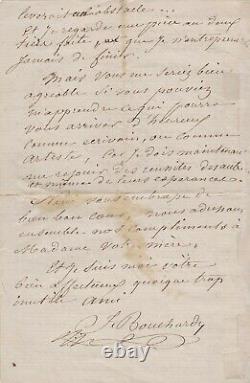 leverait un obstacle...
Et je regarde une pièce au deux
tiers faite, et que je n'entreprenne
jamais de finir.
Mais vous me seriez bien
agréable si vous pouviez
m'apprendre ce qui pourra
vous arriver d'heureux
comme écrivain, ou comme
artiste, car je dois maintenant
me réjouir des réussites des autres
et même de leurs espérances.
Néri vous embrasse de
bien bon cœur, nous adressons
ensemble nos compliments à
Madame votre mère,
Et je suis moi votre
bien affectueux quoique trop
inutile ami
J. Bouchardy